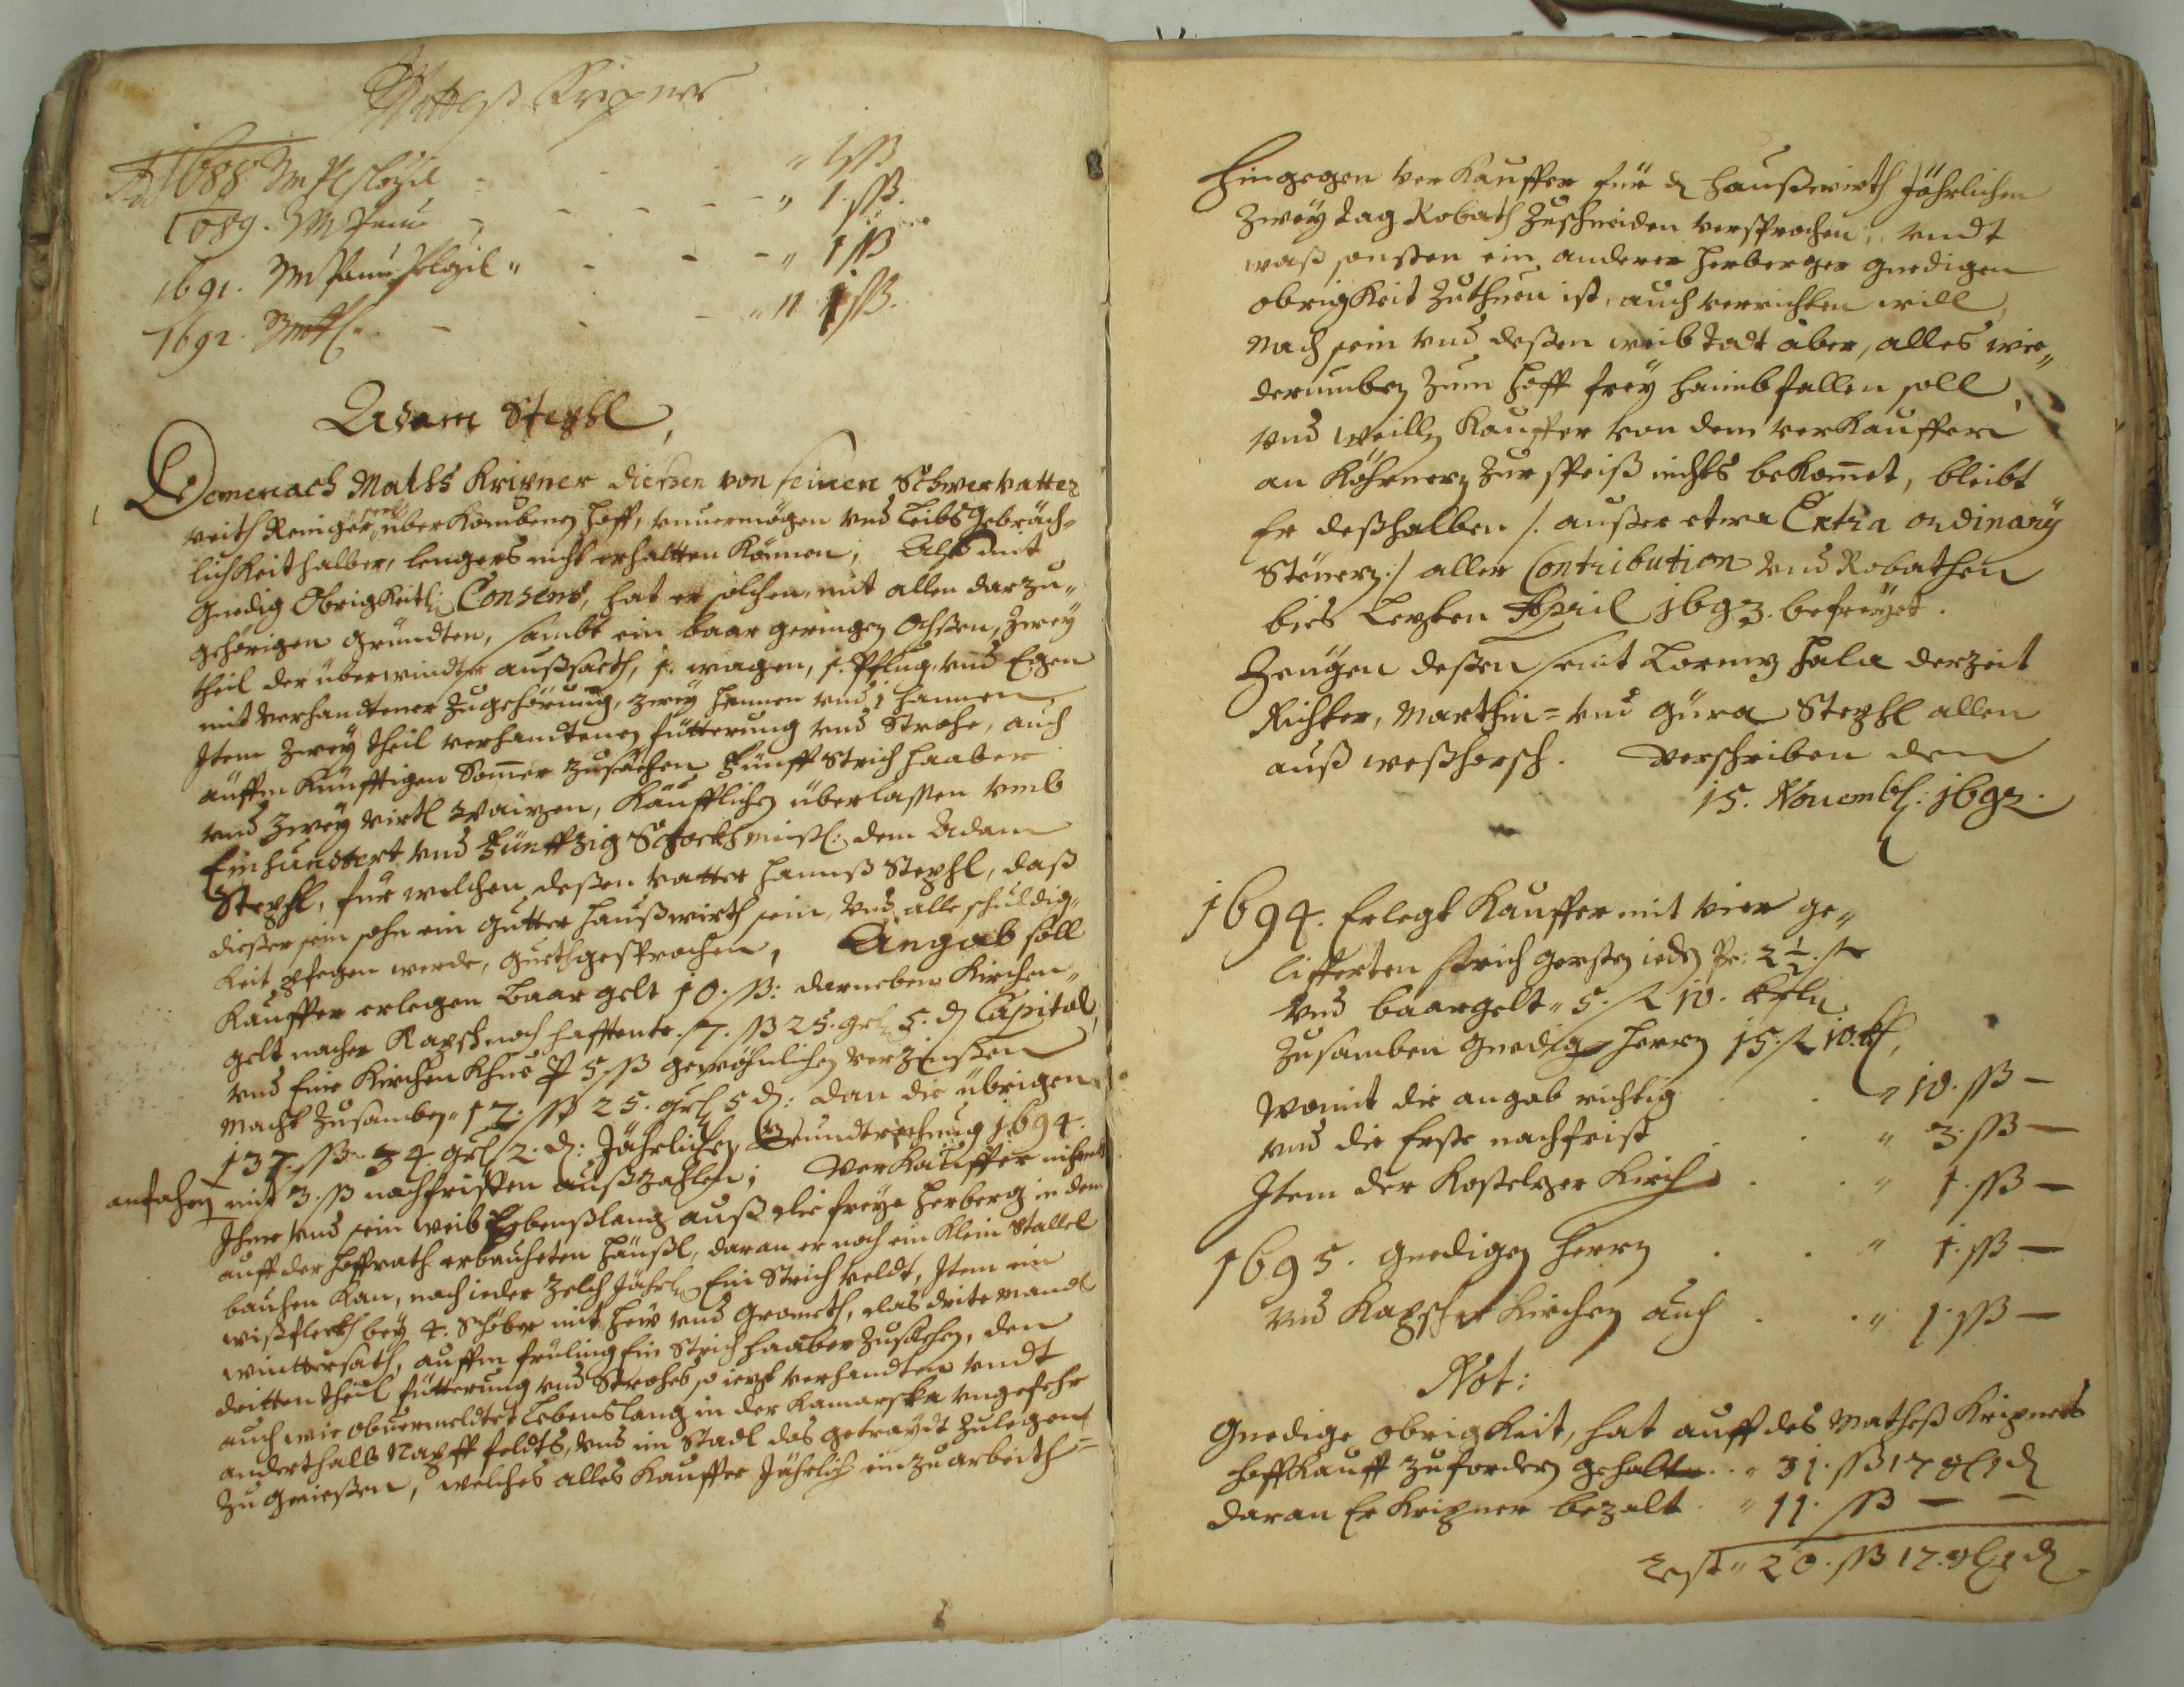 Matheß Kripner
1688 " 1 ßß
1689. " 1. ßß.
1691. " 1 ßß
1692. " 1 ßß.
Adam Stephl,
Demenach Mathß Kripner diessen von seinen Schwervatter
Veith Reniger seel. überkombenen Hoff, unvermögen und Leibsgebräch-
lichkeit halber, lengers nicht erhaltten können; Alß mit
Gnedig Obrigkeitl: Consens, hat er solchen, mit allen darzu"
gehörigen gründten, sambt ein baar geringen Ochßen, Zwey
theil der überwindter außsaeth, 1. wagen, 1. Pflug, und Egen
mit verhandtener Zugehörung, zwey hennen und 1 hannen
Item Zwey theil verhandtenen fütterung und Strohe, auch
auffm künfftigen Sommer Zusaehen Fünff Strich haaber
und Zwey virtl Waizen, käufflichen überlassen umb
Einhundtert und Fünffzig Schockh meißl: dem Adam
Stephl, für welchen deßen vatter Hannß Stephl, daß
dießer sein sohn ein gutter haußwirth sein, und alle schuldig"
keit pflegen werde, guethgesprochen, Angab soll
Kauffer erlegen baar gelt 10. ßß: darneben Kirchen"
gelt nacher Kapsch noch hafftente 7. ßß 25. grl 5. d Capital,
und Eine Kirchen Khue P 5 ßß gewöhnlichen verzinßen
macht Zusamben " 12. ßß 25. grl 5 d: dan die übrigen
137. ßß 34 grl 2. d: Jährlichen Grundtrechnung 1694.
anfahen mit 3. ßß nachfristen außzahlen; Verkauffer nihmbt
Ihme und sein weib Lebenßlang auß die freye Herberg in dem
auff der hoffrath erbautheten häußl, daran er noch ein klein Stallel
bauhen kan, nach ieder Zelch Jährl: Ein Strich veldt, Item ein
wißfleckh bey 4. Schöber mit heu und grometh, das drite mandl
wintersath, auffm fruling Ein Strich haaber Zusaehen, den
dritten theil fütterung und Strohes so iezt verhandten undt
auch wie obvermeldtet Lebenslang in der Kamarska ungefehr
anderthalb Napff feldts, und im Stadl das getraydt Zulegen
Zu genießen, welches alles Kauffer Jährlich einzuarbeith-
Hingegen Verkauffer für d haußwirth Jährlichen
Zwey tag Robath Zuschneiden versprochen, undt
waß sonsten ein anderer herberger gnedigen
obrigkeit Zuthuen ist, auch verrichten will,
Nach sein und deßen weib todt aber, alles wie"
derumben Zum hoff frey haimbfallen soll,
und weillen Kauffer von dem verkauffern
an Köhrnern Zur speiß nichts bekomet, bleibt
Er deßhalben /: außer etwa Extra ordinary
Steüern :/ aller Contribution und Robathen
bies Lezten April 1693. befreyet.
Zeugen deßen seint Lorenz Hala derzeit
Richter, Marthin= und Güra Stephl allen
auß weßhorsch. Verschriben den
15. Novembl: 1692.
1694. Erlegt Kauffer mit vier ge"
lifferten strich gersten ieden Pr: 2 1/2. fl
und baargelt " 5. fl 10.
Zusamben Gnedigen Herrn 15. fl 10.
Womit die angab richtig . . " 10. ßß —
und die Erste nachfrist . . " 3. ßß —
Item der Kostelzer Kirch . . " 1. ßß —
1695. Gnedigen Herrn . . " 1. ßß —
und Kapscher Kirchen auch . . " 1. ßß —
Not:
Gnedige obrigkeit, hat auff des Matheß Kripners
hoffkauff zufordern gehalten . . " 31. ßß 17 gl 1 d
Daran Er Kripner bezalt " 11. ßß — —
Rest " 20. ßß 17. gl 1 d